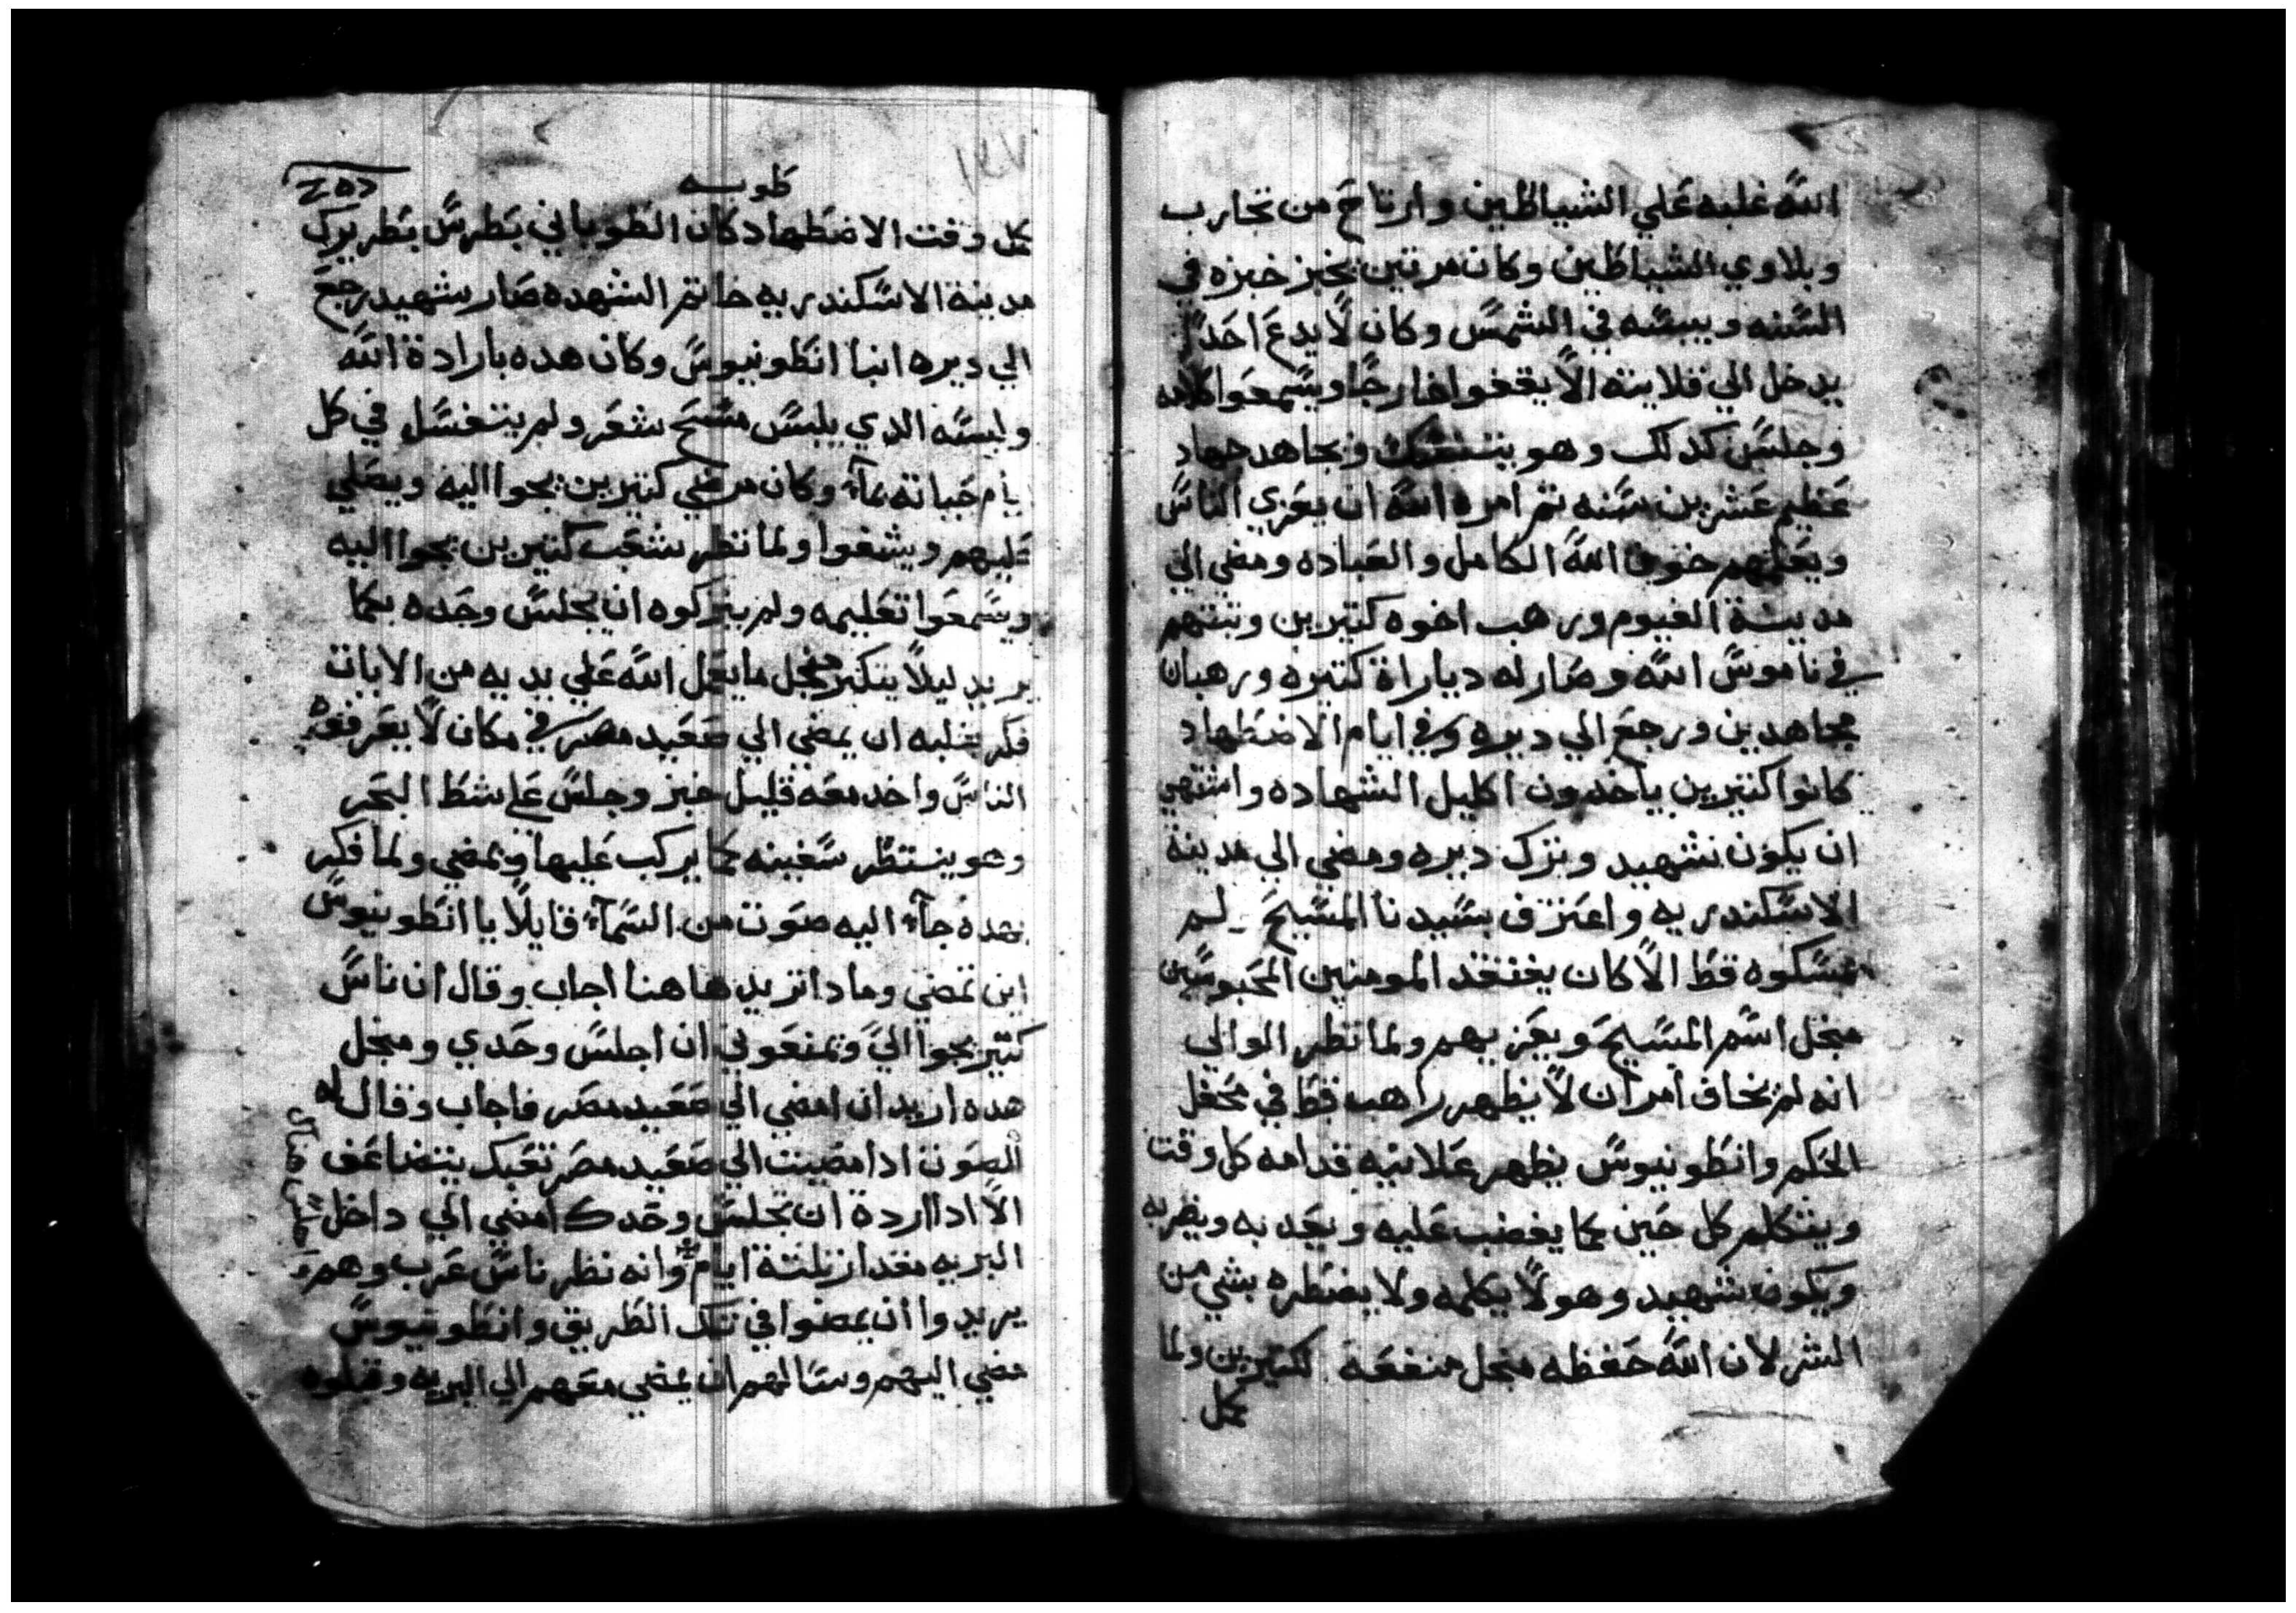 الله غلبه علي الشياطين وارتاح من تجارب
وبلاوي الشياطين وكان مرتين يخبز خبزه في
السنه وييبسه في الشمس وكان لا يدع احدا
يدخل الي قلايته الا يقفوا خارجا ويسمعوا كلامه
وجلس كدلك وهو يتنسك ويجاهد جهاد
عظيم عشرين سنه تم امره الله ان يعزي الناس
ويعلمهم خوف الله الكامل والعباده ومضي الي
مدينة الفيوم ورهب اخوه كتيرين وتبتهم
في ناموس الله وصار له دياراة كتيره ورهبان
مجاهدين ورجع الي ديره وفي ايام الاضطهاد
كانوا كتيرين ياخدون اكليل الشهاده واشتهي
ان يكون شهيد وترك ديره ومضي الي مدينة
الاسكندريه واعترف بسيدنا المسيح لم
يمسكوه قط الا كان يفتقد المومنين المحبوسين
منجل اسم المسيح ويعزيهم ولما نظر الوالي
انه لم يخاف امر ان لا يظهر راهب قط في محفل
الحكم وانطونيوس يظهر علانيه قدامه كل وقت
ويتكلم كل حين كما يغضب عليه ويعدبه ويضربه
ويكون شهيد وهو لا يكلمه ولا يضطره بشي من
الشر لان الله حفظه منجل منفعة لكتيرين ولما
كمل
طوبه
١٤٧
كمل وقت الاضطهاد كان الطوباني بطرس بطريرك
مدينة الاسكندريه خاتم الشهده صار شهيد رجع
الي ديره انبا انطونيوس وكان هده بارادة الله
ولبسه الدي يلبس مسح شعر ولم يتغسل في كل
ايام حياته بماء وكان مرضي كتيرين يجوا اليه ويصلي
عليهم ويشفوا ولما نظر شعب كتيرين يجوا اليه
ويسمعوا تعليمه ولم يتركوه ان يجلس وحده كما
يريد ليلا يتكبر منجل ما يعمل الله علي يديه من الايات
فكر بقلبه ان يمضي الي صعيد مصر في مكان لا يعرفوه
الناس واخد معه قليل خبز وجلس علي شط البحر
وهو ينتظر سفينه كما يركب عليها ويمضي ولما فكر
بهده جاء اليه صوت من السماء قايلا يا انطونيوس
اين تمضي وما دا تريد هاهنا اجاب وقال ان ناس
كتير يجوا الي وتمنعوني ان اجلس وحدي ومنجل
هده اريد ان امضي الي صعيد مصر فاجاب وقال له
الصوت ادا مضيت الي صعيد مصر تعبك يتضاعف
الا ادا اردة ان تجلس وحدك امضي الي داخل
البريه مقدار تلتة ايام وانه نظر ناس عرب وهم
يريدوا ان يمضوا في تلك الطريق وانطونيوس
مضي اليهم وسالهم ان يمضي معهم الي البريه وقبلوه